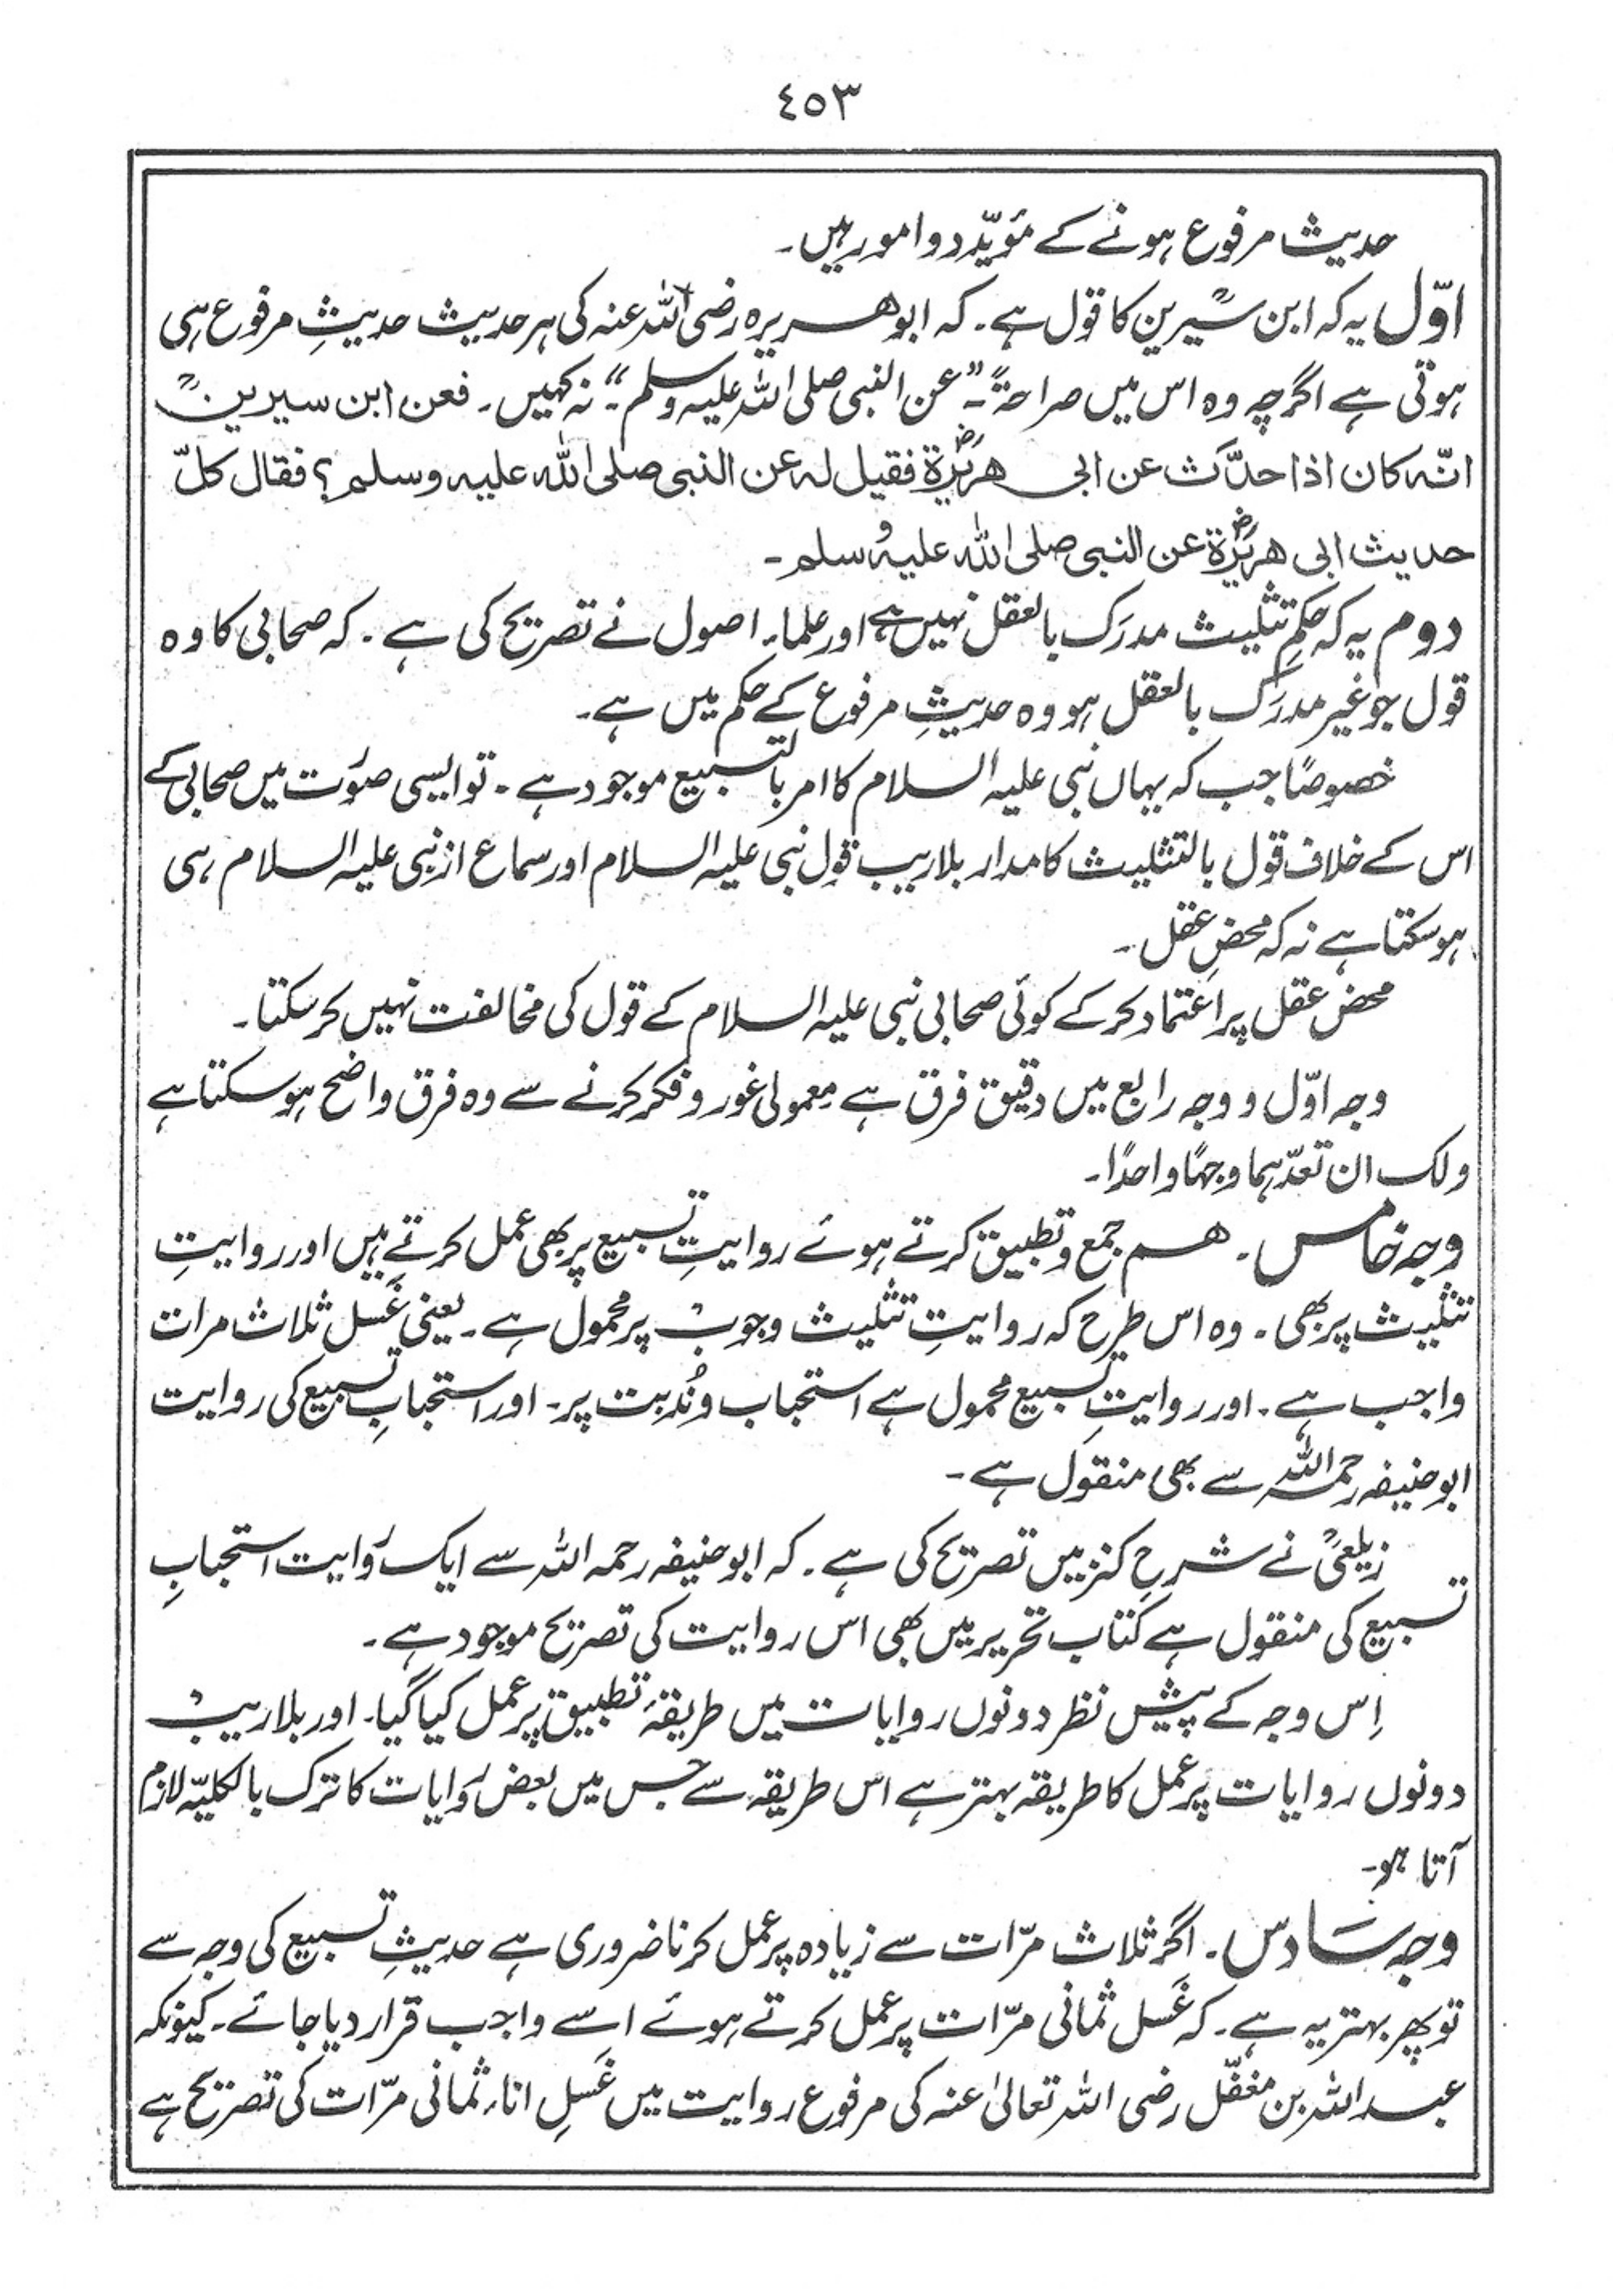 ٤٥٣
حدیث مرفوع ہونے کے مؤیّد دو امور ہیں۔
اوّل یہ کہ ابن سیرینؒ کا قول ہے۔ کہ ابوھریرہ رضی اللہ عنہ کی ہر حدیث حدیثِ مرفوع ہی
ہوتی ہے اگرچہ وہ اس میں صراحۃً۔ "عن النبی صلی اللہ علیہ وسلم"۔ نہ کہیں۔ فعن ابن سیرینؒ
انّہ کان اذا حدّث عن ابی ھریرۃؓ فقیل لہ عن النبی صلی اللہ علیہ وسلم؟ فقال کلّ
حدیث ابی ھریرۃؓ عن النبی صلی اللہ علیہ وسلم۔
دوم یہ کہ حکمِ تثلیث مدرَک بالعقل نہیں ہے اور علماء اصول نے تصریح کی ہے۔ کہ صحابی کا وہ
قول جو غیر مدرَک بالعقل ہو وہ حدیثِ مرفوع کے حکم میں ہے۔
خصوصًا جب کہ یہاں نبی علیہ السلام کا امر بالتسبیع موجود ہے۔ تو ایسی صورت میں صحابی کے
اس کے خلاف قول بالتثلیث کا مدار بلاریب قولِ نبی علیہ السلام اور سماع از نبی علیہ السلام ہی
ہوسکتا ہے نہ کہ محضِ عقل۔
محض عقل پر اعتماد کرکے کوئی صحابی نبی علیہ السلام کے قول کی مخالفت نہیں کرسکتا۔
وجہ اوّل و وجہ رابع میں دقیق فرق ہے معمولی غور و فکر کرنے سے وہ فرق واضح ہوسکتا ہے
ولک ان تعدّہما وجہًا واحدًا۔
وجہ خامس۔ ھم جمع و تطبیق کرتے ہوئے روایتِ تسبیع پر بھی عمل کرتے ہیں اور روایتِ
تثلیث پر بھی۔ وہ اس طرح کہ روایتِ تثلیث وجوب پر محمول ہے۔ یعنی غَسل ثلاث مرات
واجب ہے۔ اور روایتِ تسبیع محمول ہے استحباب و نُدبت پر۔ اور استحبابِ تسبیع کی روایت
ابوحنیفہ رحمہ اللہ سے بھی منقول ہے۔
زیلعیؒ نے شرحِ کنز میں تصریح کی ہے۔ کہ ابوحنیفہ رحمہ اللہ سے ایک روایت استحبابِ
تسبیع کی منقول ہے کتاب تحریر میں بھی اس روایت کی تصریح موجود ہے۔
اِس وجہ کے پیش نظر دونوں روایات میں طریقۂ تطبیق پر عمل کیا گیا۔ اور بلاریب
دونوں روایات پر عمل کا طریقہ بہتر ہے اس طریقہ سے جس میں بعض روایات کا ترک بالکلیّہ لازم
آتا ہو۔
وجہ سادس۔ اگر ثلاث مرّات سے زیادہ پر عمل کرنا ضروری ہے حدیثِ تسبیع کی وجہ سے
تو پھر بہتر یہ ہے۔ کہ غَسل ثمانی مرّات پر عمل کرتے ہوئے اسے واجب قرار دیا جائے۔ کیونکہ
عبداللہ بن مغفّل رضی اللہ تعالیٰ عنہ کی مرفوع روایت میں غَسلِ اناء ثمانی مرّات کی تصریح ہے